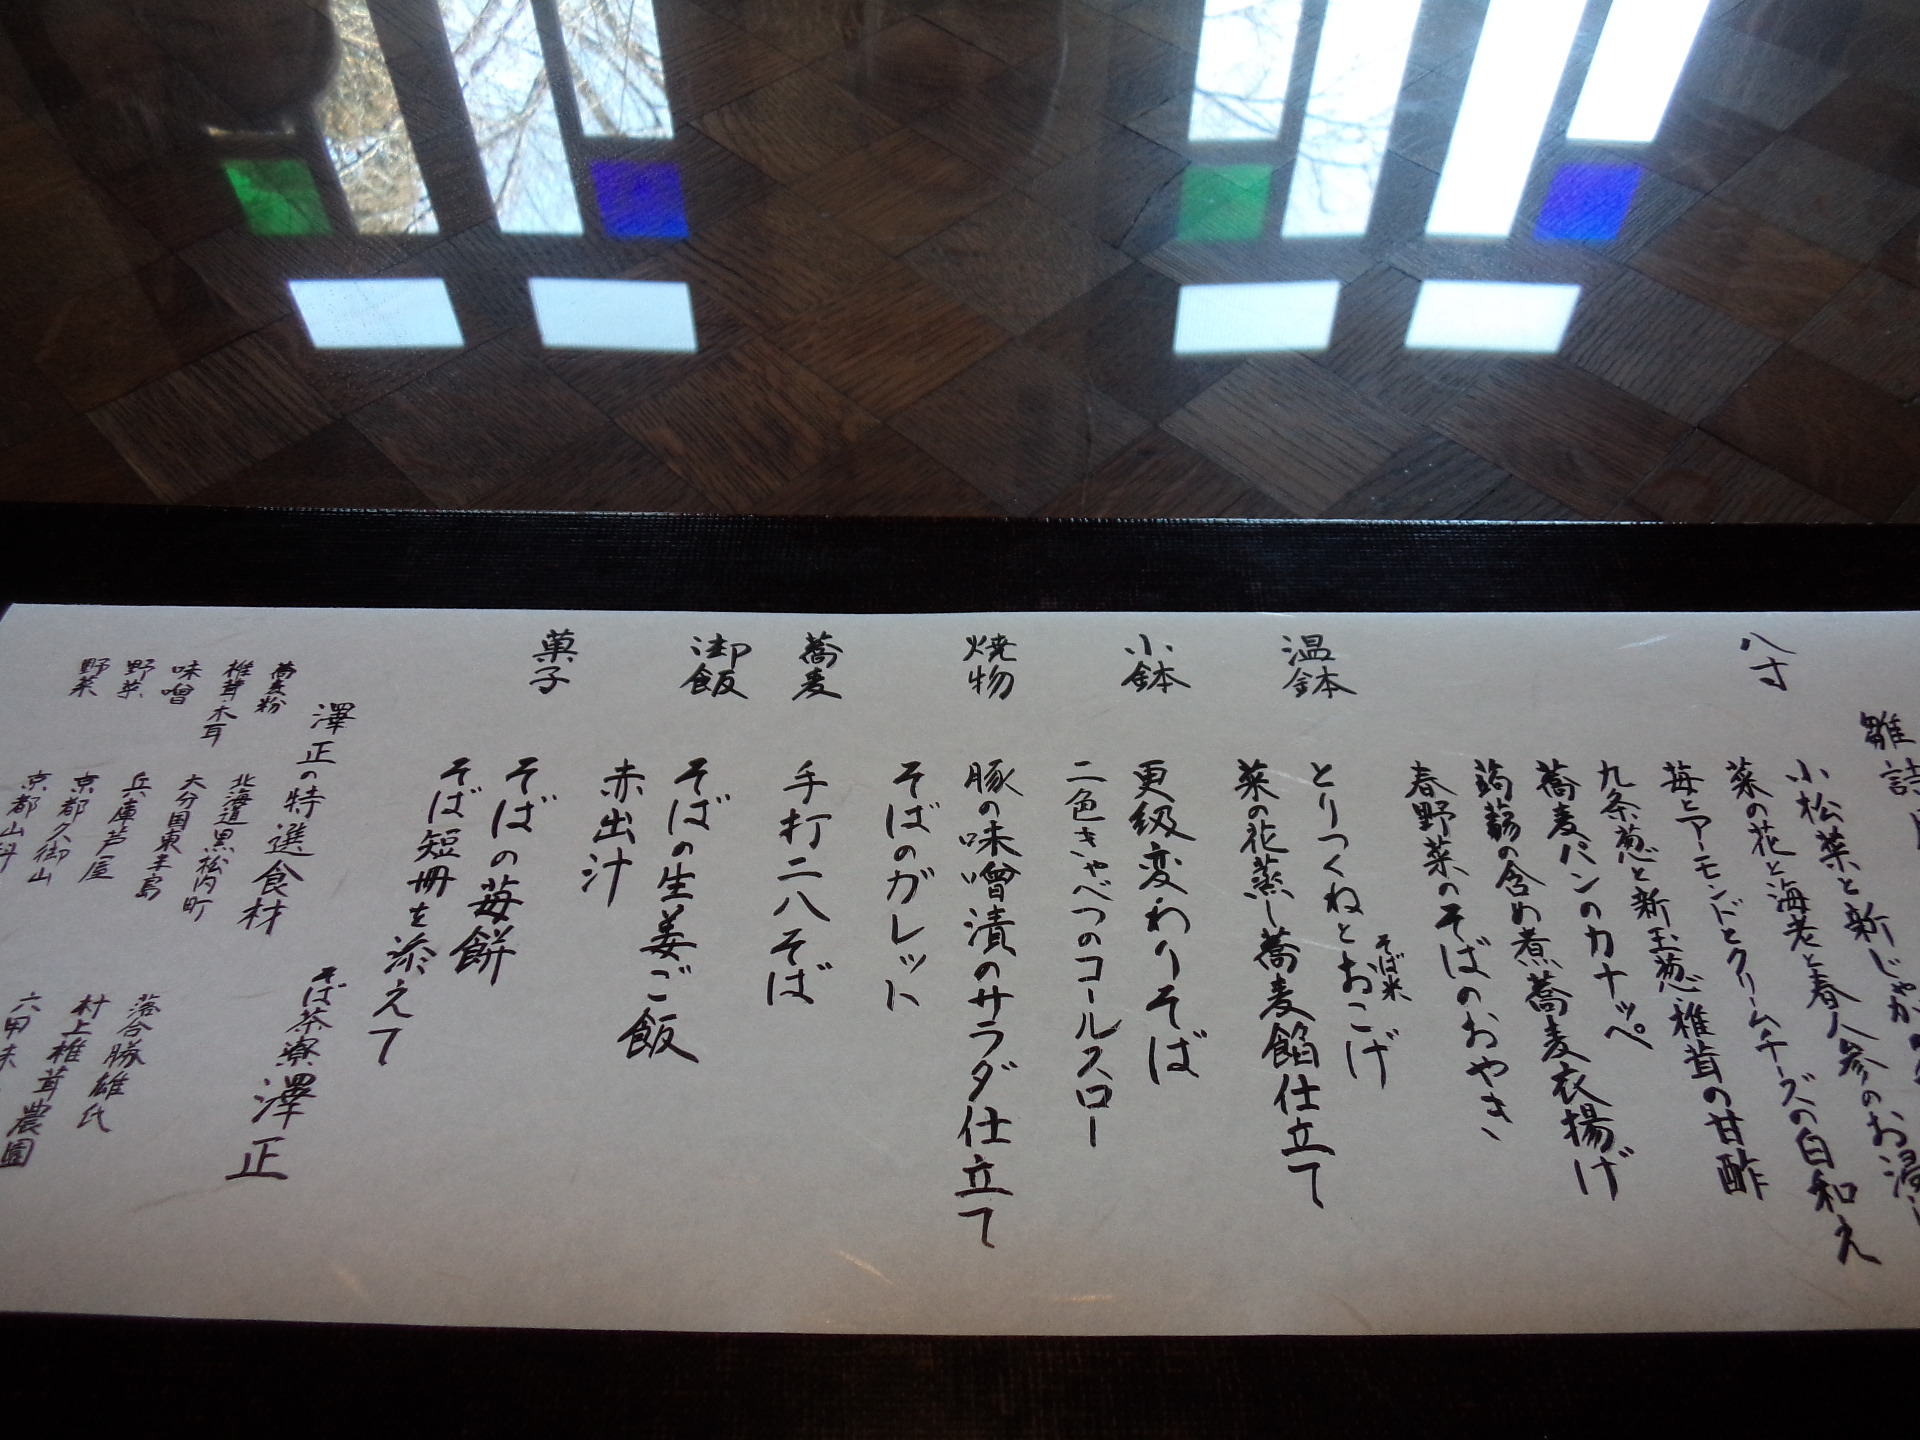 八寸
小松菜と新じゃがの
菜の花と海老と春人参のお浸し
苺とアーモンドとクリームチーズの白和え
九条葱と新玉葱、椎茸の甘酢
蕎麦パンのカナッペ
蒟蒻の含め煮蕎麦衣揚げ
春野菜のそばのおやき
温鉢
とりつくねとそば米おこげ
菜の花蒸し蕎麦餡仕立て
小鉢
更級変わりそば
二色きゃべつのコールスロー
焼物
豚の味噌漬のサラダ仕立て
そばのガレット
蕎麦
手打二八そば
御飯
そばの生姜ご飯
赤出汁
菓子
そばの苺餅
そば短冊を添えて
そば茶寮澤正
澤正の特選食材
蕎麦粉 北海道黒松内町 落合勝雄氏
椎茸・木耳 大分国東半島 村上椎茸農園
味噌 兵庫芦屋 六甲味
野菜 京都久御山
野菜 京都山科